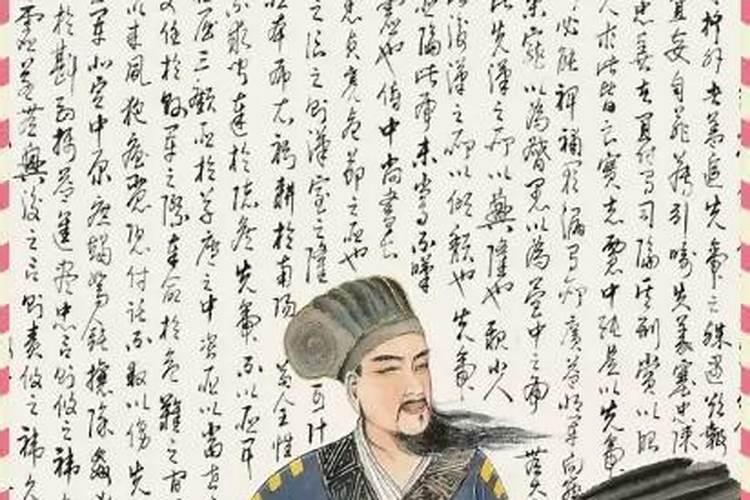 外者蓋追先帝之殊遇欲報
宜妄自菲薄引喻失義塞忠諫
忠善者宜付有司論其刑賞以昭
允等此皆良實志慮忠純是以先帝
必能裨補闕漏有所廣益將軍向
眾寵以為督愚以為營中之事
此先漢之所以興隆也親小人
後漢之所以傾頹也先帝
論此事未嘗不嘆
靈也侍中尚書長
悉貞亮死節之臣也
信之則漢室之隆可計
臣本布衣躬耕於南陽苟全性
不求聞達於諸侯先帝不以臣卑
屈三顧臣於草廬之中咨臣以當世
受任於敗軍之際奉命於危難之間
以來夙夜憂嘆恐付託不效以傷先
三軍北定中原庶竭駑鈍攘除姦
於斟酌損益進盡忠言則攸之禕
靈若無興復之言則責攸之禕允